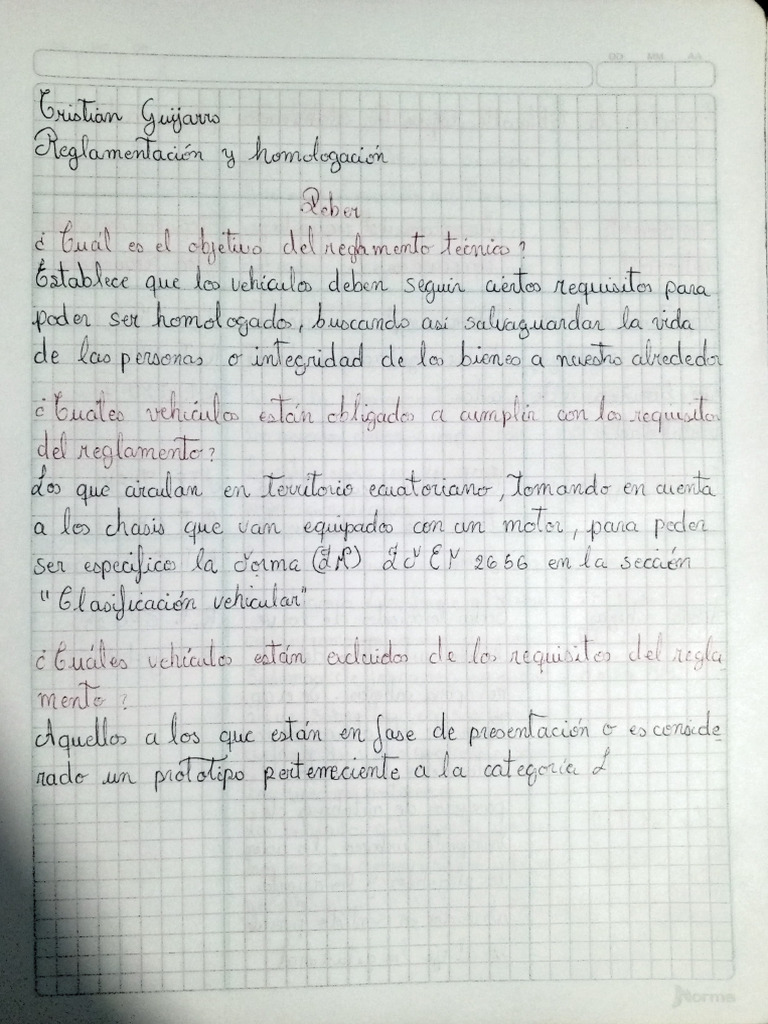 DD MM AA
Cristian Guijarro
Reglamentación y homologación
Deber
¿Cuál es el objetivo del reglamento técnico?
Establece que los vehículos deben seguir ciertos requisitos para
poder ser homologados, buscando así salvaguardar la vida
de las personas o integridad de los bienes a nuestro alrededor
¿Cuáles vehículos están obligados a cumplir con los requisitos
del reglamento?
Los que circulan en territorio ecuatoriano, tomando en cuenta
a los chasis que van equipados con un motor, para poder
ser especificos la Norma INEN 2656 en la sección
"Clasificación vehicular"
¿Cuáles vehículos están excluidos de los requisitos del regla
mento?
Aquellos a los que están en fase de presentación o es conside
rado un prototipo perteneciente a la categoría L
Norma